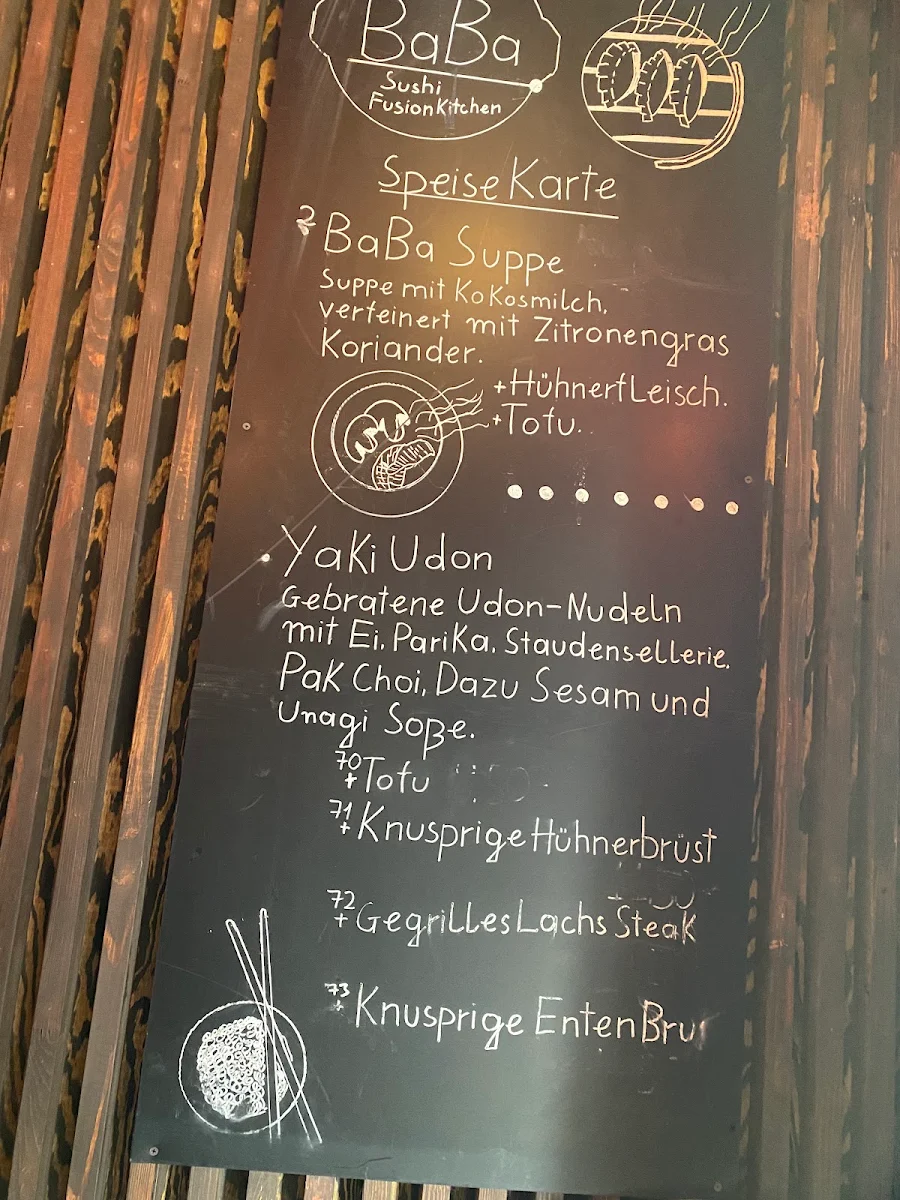 BaBa
Sushi
FusionKitchen
Speise Karte
2 BaBa Suppe
Suppe mit Kokosmilch,
verfeinert mit Zitronengras
Koriander.
+Hühnerfleisch.
+Tofu.
Yaki Udon
Gebratene Udon-Nudeln
mit Ei, Parika, Staudensellerie,
Pak Choi, Dazu Sesam und
Unagi Soße.
70 +Tofu
71 +Knusprige Hühnerbrüst
72 +Gegrilles Lachs Steak
73 +Knusprige Enten Bru